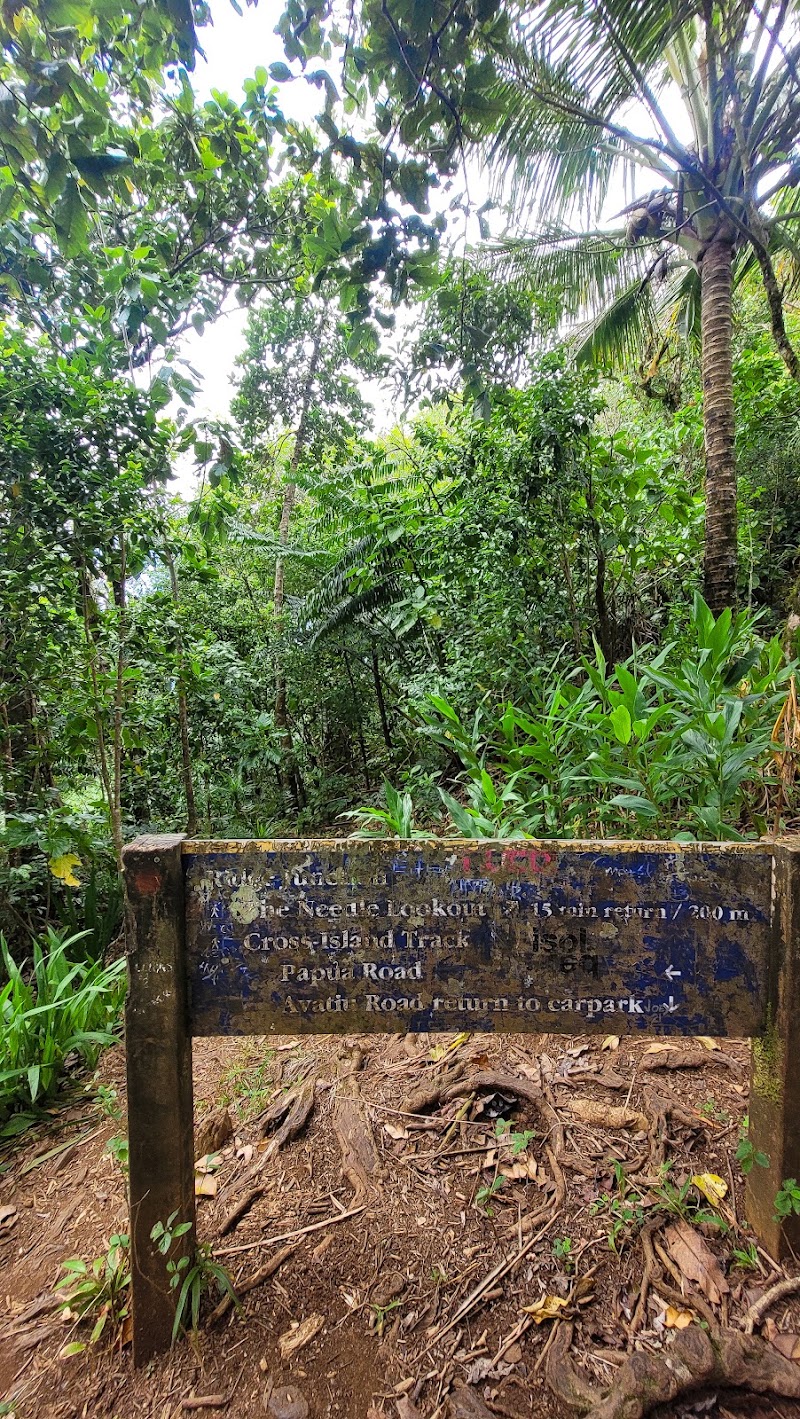 Ridge Junction
The Needle Lookout 15 min return / 200 m
Cross-Island Track
Papua Road ←
Avatiu Road return to carpark ↓